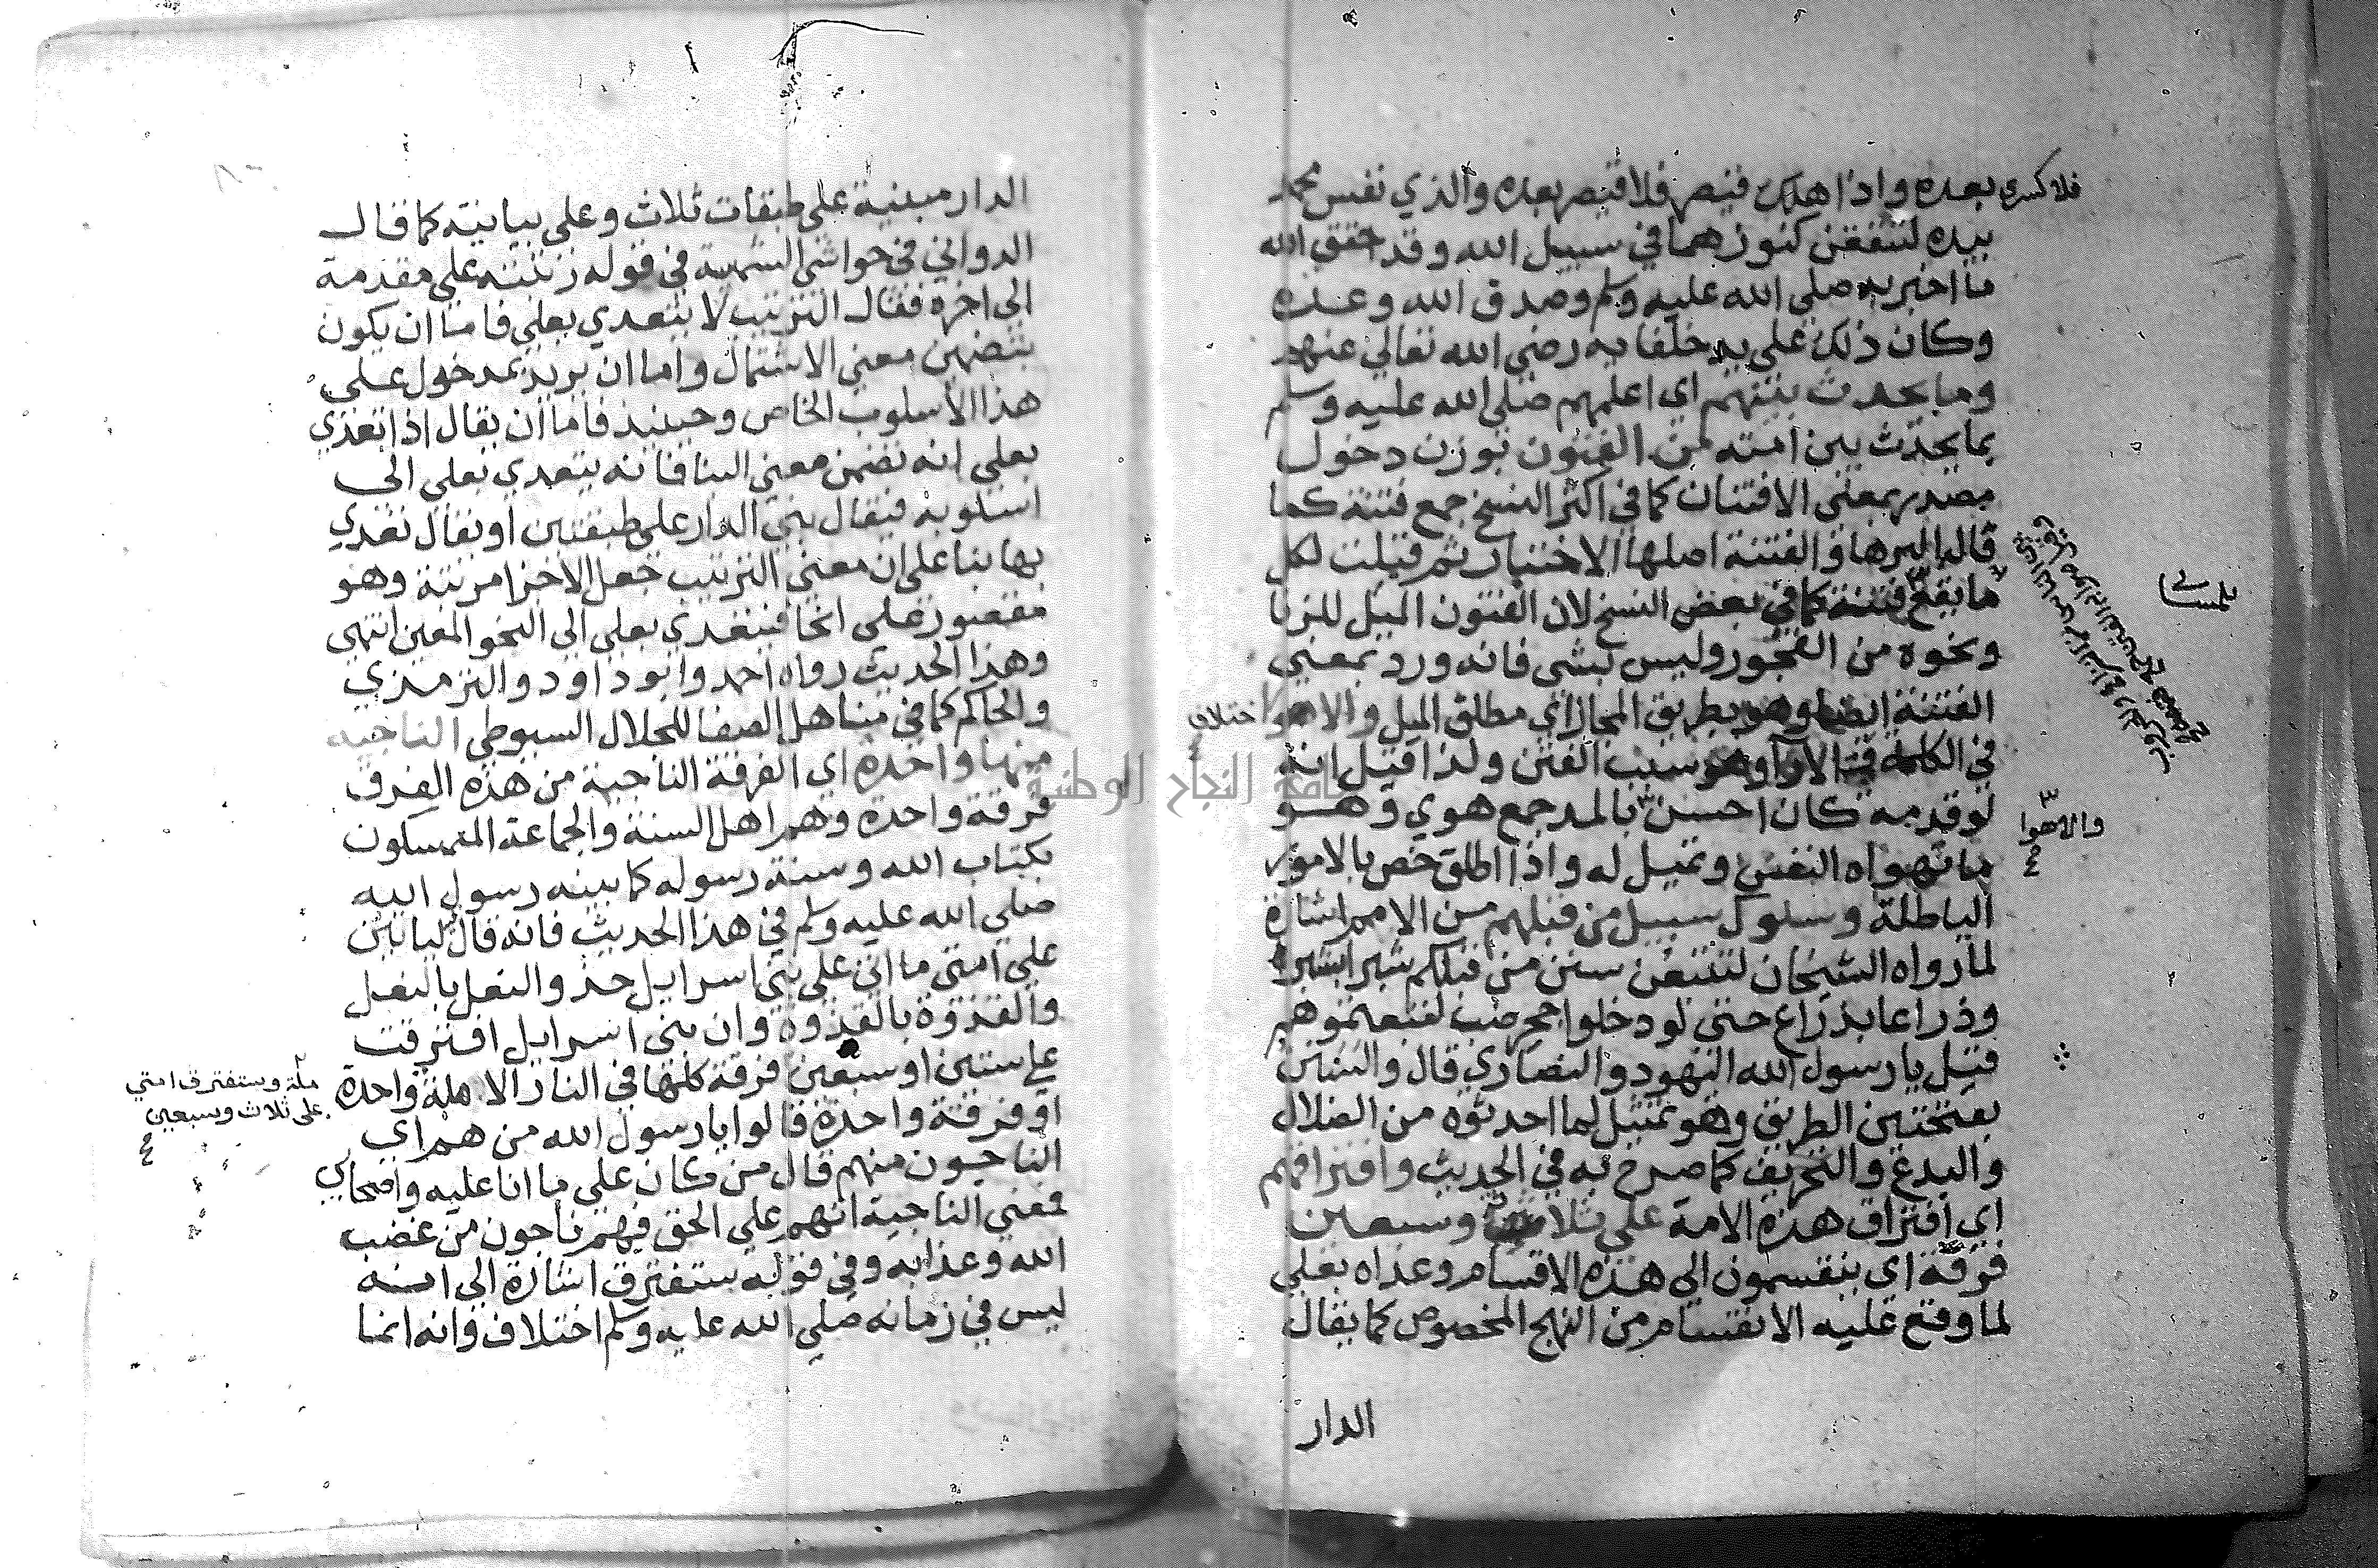 فلا كسرى بعده واذا هلك قيصر فلا قيصر بعده والذي نفس محمد
بيده لتنفقن كنوزهما في سبيل الله وقد حقق الله
ما اخبر به صلى الله عليه وسلم وصدق الله وعده
وكان ذلك على يد خلفايه رضي الله تعالى عنهم
وما يحدث بينهم اي اعلمهم صلى الله عليه وسلم
بما يحدث بين امته من الفتون بوزن دخول
مصدر بمعنى الافتنان كما في اكثر النسخ جمع فتنة كما
قاله البرهان والفتنة اصلها الاختبار ثم قيلت لكل
ما يقع فتنة كما في بعض النسخ لان الفتون الميل للزنا
ونحوه من الفجور وليس بشي فانه ورد بمعنى
الفتنة ايضا وهو بطريق المجاز اي مطلق الميل والاهوا
اختلاف
في الكلمة الآرا وهو سبب الفتن ولذا قيل انه
لو قدمه كان احسن بالمد جمع هوي وهو
والاهوا
ما تهواه النفس وتميل له واذا اطلق خص بالامور
الباطلة وسلوك سبيل من قبلهم من الامم اشارة
لما رواه الشيخان لتتبعن سنن من قبلكم شبرا بشبرا
وذراعا بذراع حتى لو دخلوا جحر ضب لتبعتموهم
قيل يا رسول الله اليهود والنصاري قال والسنن
بفتحتين الطريق وهو تمثيل لما احدثوه من الضلال
والبدع والتحريف كما صرح به في الحديث وافتراقهم
اي افتراق هذه الامة على ثلاث وسبعين
فرقة اي ينقسمون الى هذه الاقسام وعداه بعلى
لما وقع عليه الانقسام من النهج المخصوص كما يقال
الدار
الدار مبنية على طبقات ثلاث وعلى بيانيه كما قال
الدواني في حواشي الشمسية في قوله رتبته على مقدمة
الى اخره فقال الترتيب لا يتعدي بعلى فاما ان يكون
بتضمن معنى الاشتمال واما ان يريد بمدخول على
هذا الاسلوب الخاص وحينيذ فاما ان يقال اذا تعدي
بعلى انه تضمن معنى البنا فانه يتعدي بعلى الى
اسلوبه فيقال بنى الدار على طبقتين او يقال تعدي
بها بنا على ان معنى الترتيب جعل الاجزا مرتبة وهو
مقصور على انحا فيتعدي بعلى الى النحو المعين انتهى
وهذا الحديث رواه احمد وابو داود والترمذي
والحاكم كما في مناهل الصفا للجلال السيوطي الناجيه
منها واحدة اي الفرقة الناجية من هذه الفرق
فرقة واحدة وهم اهل السنة والجماعة المتمسكون
بكتاب الله وسنة رسوله كما بينه رسول الله
صلى الله عليه وسلم في هذا الحديث فانه قال لياتين
على امتي ما اتى على بني اسرايل حذو النعل بالنعل
والقذوة بالقذوة وان بني اسرايل افترقت
على ستين او سبعين فرقة كلها في النار الا ملة واحدة
ملة وستفترق امتي
على ثلاث وسبعين
او فرقة واحدة قالوا يا رسول الله من هم اي
الناجون منهم قال من كان على ما انا عليه واصحابي
فمعنى الناجية انهم على الحق فهم ناجون من غضب
الله وعذابه وفي قوله ستفترق اشارة الى انه
ليس في زمانه صلى الله عليه وسلم اختلاف وانه انما
جامعة النجاح الوطنية